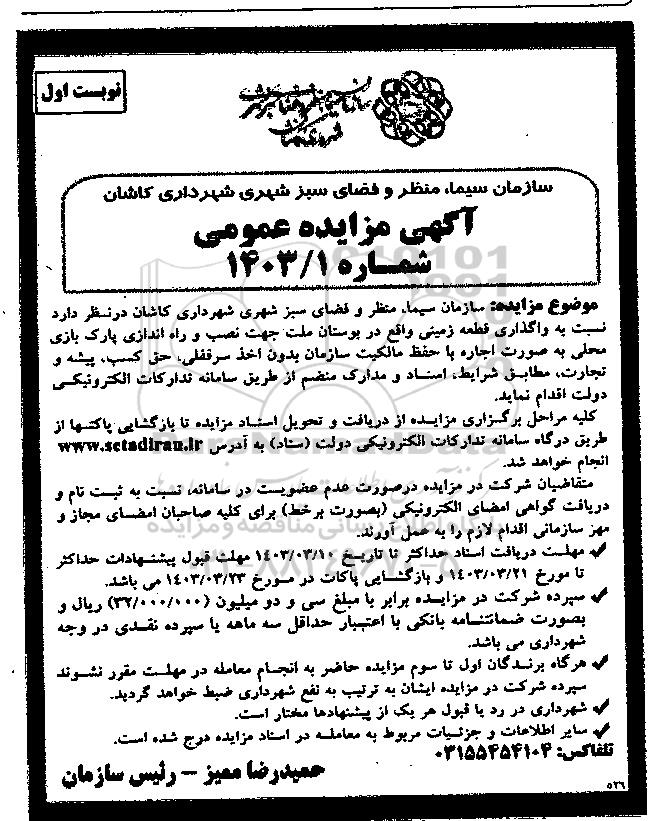 نوبت اول
سازمان سیما، منظر و فضای سبز شهری شهرداری کاشان
آگهی مزایده عمومی
شماره ۱۴۰۳/۱
موضوع مزایده: سازمان سیما، منظر و فضای سبز شهری شهرداری کاشان درنظر دارد
نسبت به واگذاری قطعه زمینی واقع در بوستان ملت جهت نصب و راه اندازی پارک بازی
محلی به صورت اجاره با حفظ مالکیت سازمان بدون اخذ سرقفلی، حق کسب، پیشه و
تجارت، مطابق شرایط، اسناد و مدارک منضم از طریق سامانه تدارکات الکترونیکی
دولت اقدام نماید.
کلیه مراحل برگزاری مزایده از دریافت و تحویل اسناد مزایده تا بازگشایی پاکتها از
طریق درگاه سامانه تدارکات الکترونیکی دولت (ستاد) به آدرس www.setadiran.ir
انجام خواهد شد.
متقاضیان شرکت در مزایده درصورت عدم عضویت در سامانه، نسبت به ثبت نام و
دریافت گواهی امضای الکترونیکی (بصورت برخط) برای کلیه صاحبان امضای مجاز و
مهر سازمانی اقدام لازم را به عمل آورند.
✓ مهلت دریافت اسناد حداکثر تا تاریخ ۱۴۰۳/۰۳/۱۰ مهلت قبول پیشنهادات حداکثر
تا مورخ ۱۴۰۳/۰۳/۲۱ و بازگشایی پاکات در مورخ ۱۴۰۳/۰۳/۲۳ می باشد.
✓ سپرده شرکت در مزایده برابر با مبلغ سی و دو میلیون (۳۲/۰۰۰/۰۰۰) ریال و
بصورت ضمانتنامه بانکی با اعتبار حداقل سه ماهه یا سپرده نقدی در وجه
شهرداری می باشد.
✓ هرگاه برندگان اول تا سوم مزایده حاضر به انجام معامله در مهلت مقرر نشوند
سپرده شرکت در مزایده ایشان به ترتیب به نفع شهرداری ضبط خواهد گردید.
✓ شهرداری در رد یا قبول هر یک از پیشنهادها مختار است.
✓ سایر اطلاعات و جزئیات مربوط به معامله در اسناد مزایده درج شده است.
تلفاکس: ۰۳۱۵۵۴۵۴۱۰۴
حمیدرضا ممیز – رئیس سازمان
۵۲۶